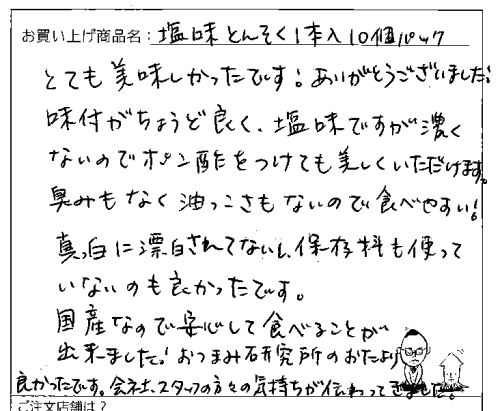 お買い上げ商品名：塩味とんそく1本入10個パック
とても美味しかったです！ありがとうございました！
味付がちょうど良く、塩味ですが濃く
ないのでポン酢をつけても美しくいただけます。
臭みもなく油っこさもないので食べやすい！
真っ白に漂白されてないし、保存料も使って
いないのも良かったです。
国産なので安心して食べることが
出来ました！おつまみ研究所のおたより
良かったです。会社、スタッフの方々の気持ちが伝わってきました！
ご注文店舗は？